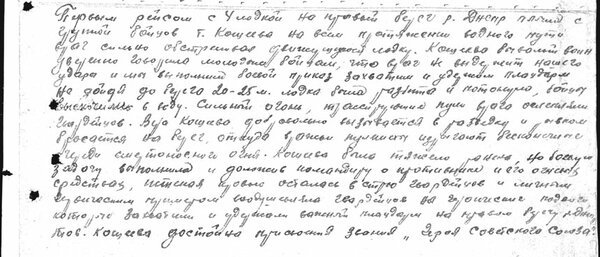 Первым рейсом с 4 лодкой на правый берег р. Днепр плыл с
группой бойцов т. Кощеева на всем протяжении водного пути
враг сильно обстреливал движущуюся лодку. Кощеева
уверенно говорила молодым бойцам, что враг не выдержит нашего
удара и мы выполним боевой приказ захватим и удержим плацдарм
не дойдя до берега 20-25 м. лодка была разбита и потонула, бойцы
выскочили в воду. Сильный огонь, трассирующие пули врага
гвардейцев. Кощеева добровольно вызывается в разведку и
бросается на берег, откуда вражьи пулеметы изрыгают бесконечные
очереди смертоносного огня. Кощеева была тяжело ранена, но боевую
задачу выполнила и доложив командиру о противнике и его огневых
средствах, истекая кровью осталась в строю гвардейцев и личным
героическим примером воодушевляла гвардейцев на героические подвиги
которые захватили и удержали важный плацдарм на правом берегу р. Днепр
Тов. Кощеева достойна присвоения звания „Героя Советского Союза"